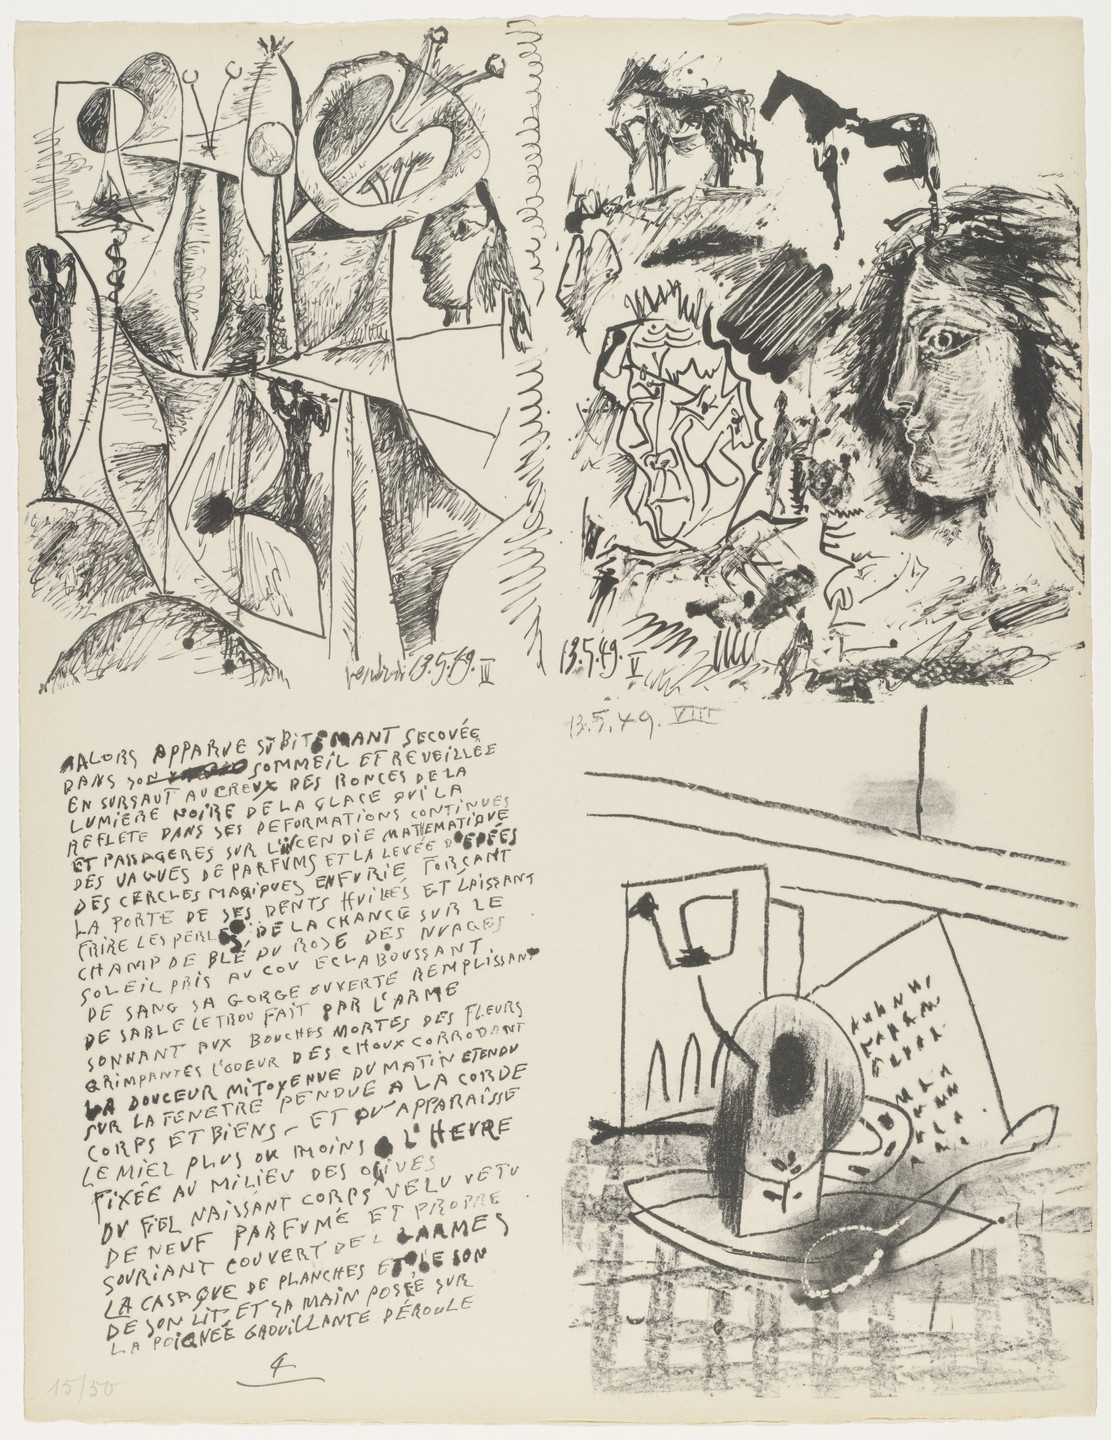 vendredi 13.5.49. IV
13.5.49. V
13.5.49. VIII
ALORS APPARUE SUBITEMANT SECOUÉE
DANS SON SOMMEIL ET REVEILLÉE
EN SURSAUT AU CREUX DES RONCES DE LA
LUMIÈRE NOIRE DE LA GLACE QUI LA
REFLETE DANS SES DEFORMATIONS CONTINUES
ET PASSAGERES SUR L'INCENDIE MATEMATIQUE
DES VAGUES DE PARFUMS ET LA LEVÉE D'EPÉES
DES CERCLES MAGIQUES EN FURIE FORSANT
LA PORTE DE SES DENTS HUILÉS ET LAISSANT
FRIRE LES PERLES DE LA CHANCE SUR LE
CHAMP DE BLÉ DU ROSE DES NUAGES
SOLEIL PRIS AU COU ECLABOUSSANT
DE SANG SA GORGE OUVERTE REMPLISSANT
DE SABLE LE TROU FAIT PAR L'ARME
SONNANT AUX BOUCHES MORTES DES FLEURS
GRIMPANTES L'ODEUR DES CHOUX CORRODANT
LA DOUCEUR MITOYENNE DU MATIN ETENDU
SUR LA FENETRE PENDUE A LA CORDE
CORPS ET BIENS - ET QU'APPARAÎSSE
LE MIEL PLUS OU MOINS A L'HEURE
FIXÉE AU MILIEU DES OLIVES
DU FIEL NAISSANT CORPS VELU VETU
DE NEUF PARFUMÉ ET PROPRE
SOURIANT COUVERT DE LARMES
LA CASAQUE DE PLANCHES ET LE SON
DE SON LIT ET SA MAIN POSÉE SUR
LA POIGNÉE GROUILLANTE DÉROULE
4
15/50